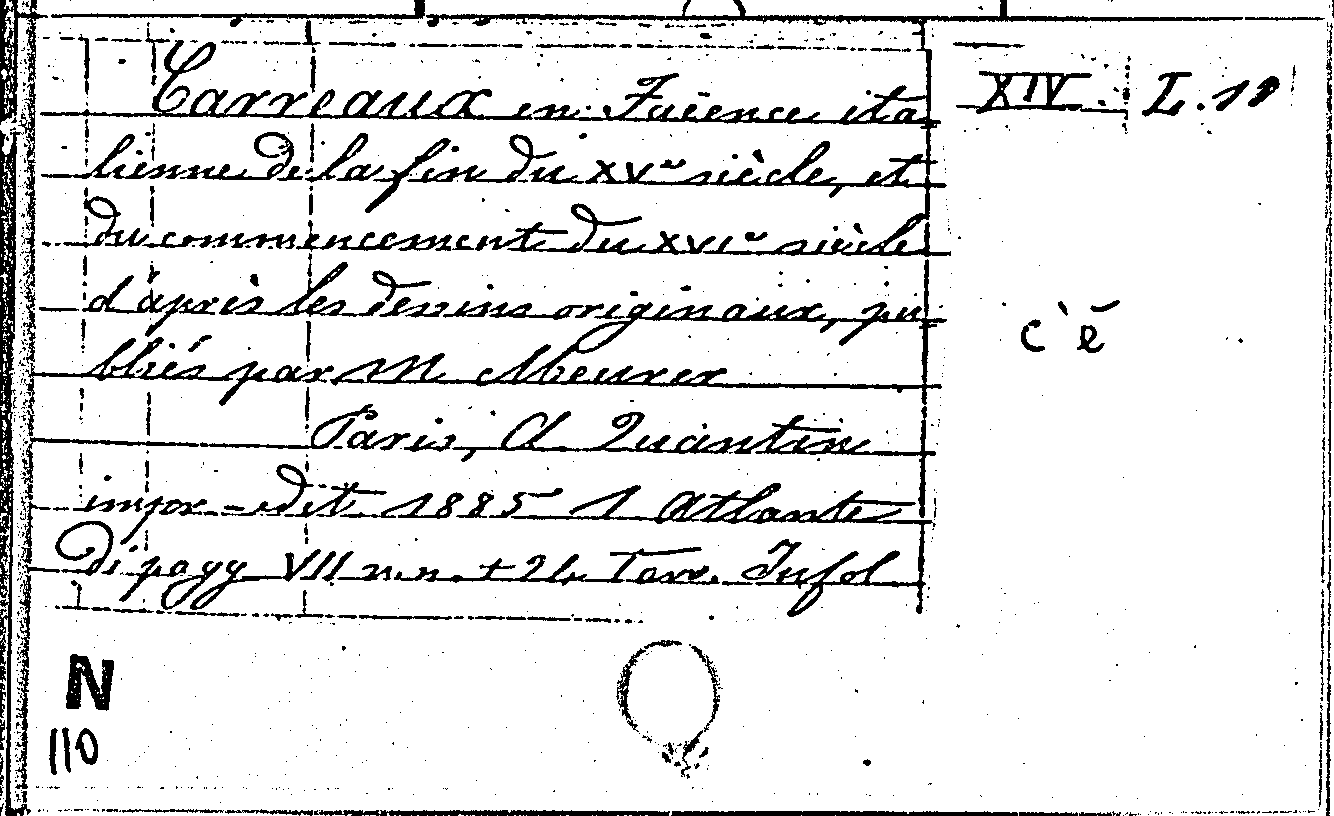 Carreaux en Faïence ita XIV. L. 19
lienne de la fin du XVe siècle, et
du commencement du XVIe siècle
d'après les dessins originaux, pu
bliés par M Meurer c'è
Paris, A. Quantin
impr-edit 1885 1 Atlante
di pagg VII n.n. + 24 Tavv. Infol
N
110